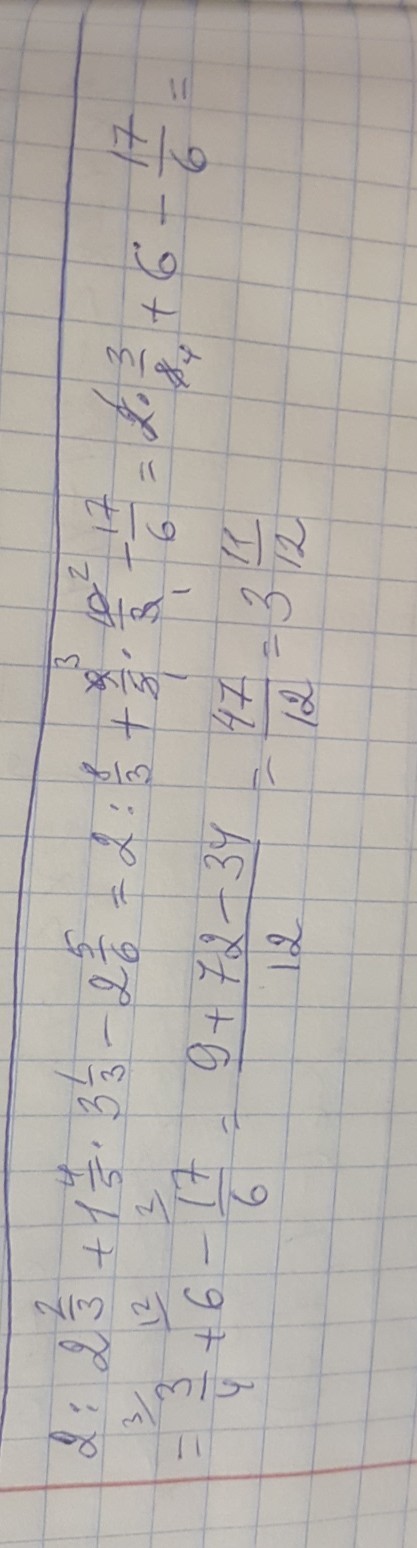 2 : 2 2/3 + 1 4/5 · 3 1/3 - 2 5/6 = 2 : 8/3 + 9/5 · 10/3 - 17/6 = 2 · 3/8 + 6 - 17/6 =
= 3/4 + 6 - 17/6 = (9 + 72 - 34)/12 = 47/12 = 3 11/12